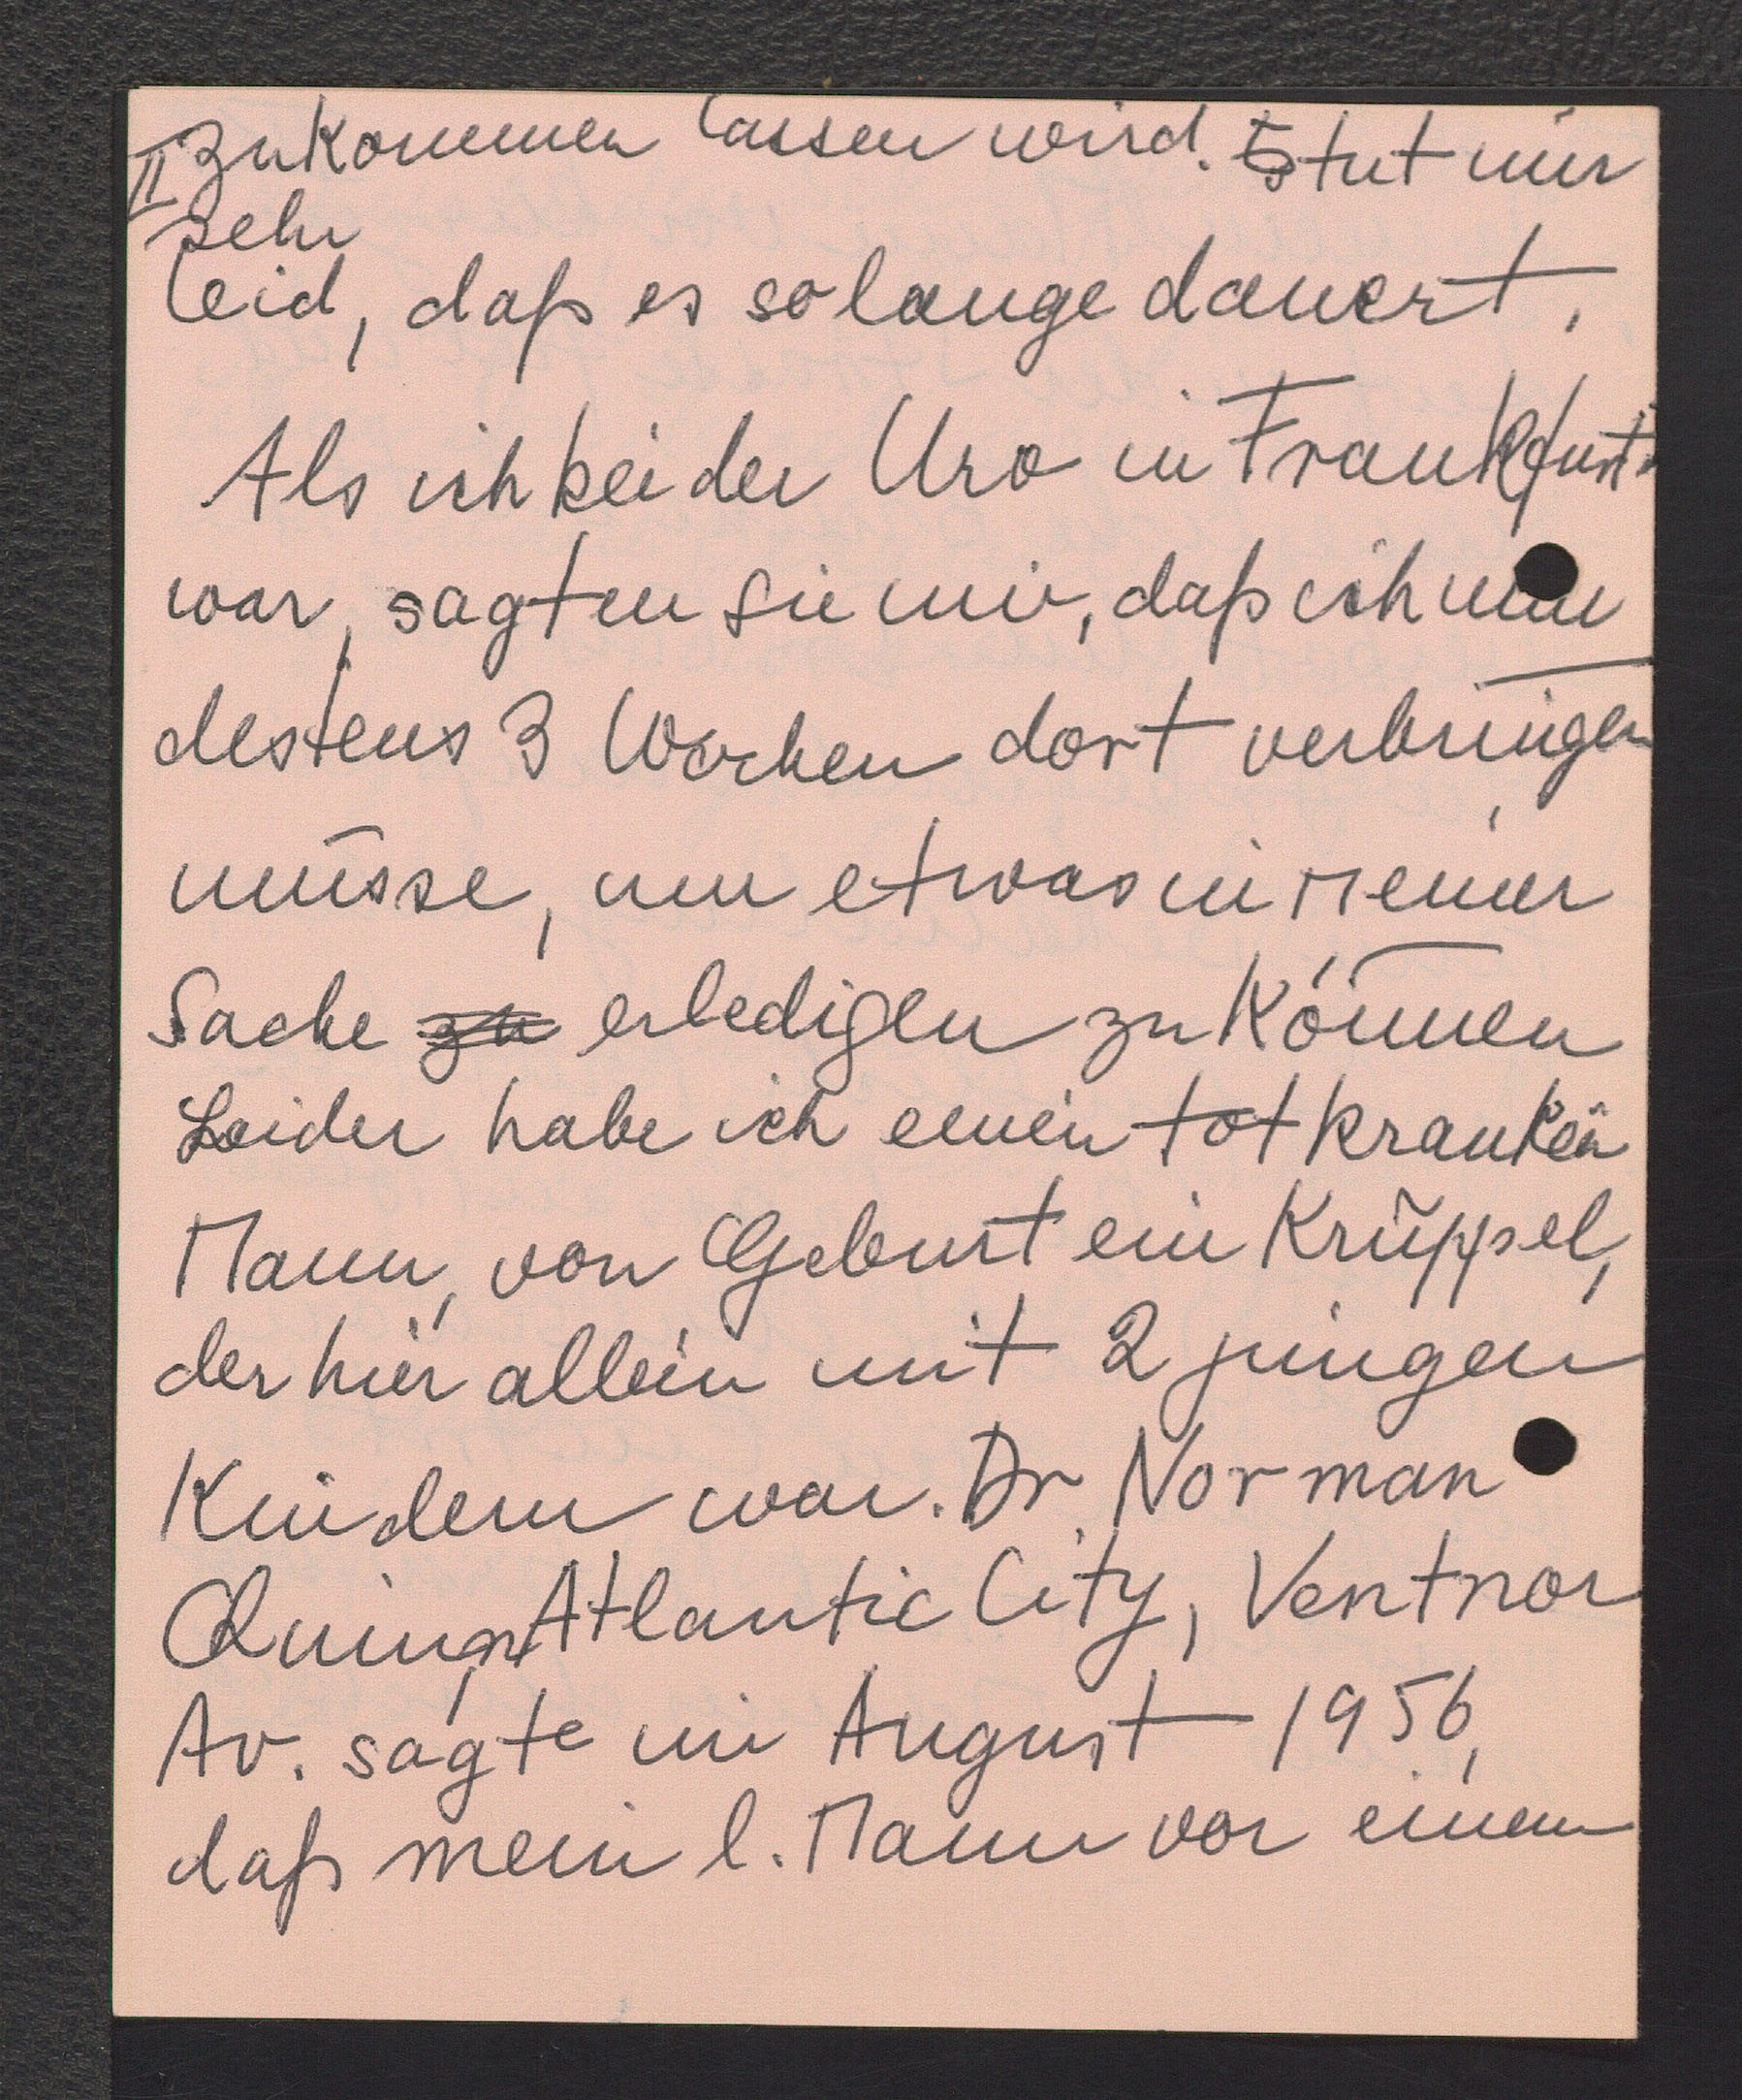 II zukommen lassen wird. Es tut mir
sehr
leid, daß es so lange dauert.
Als ich bei der Uro in Frankfurt
war, sagten sie mir, daß ich min
destens 3 Wochen dort verbringen
müsse, um etwas in meiner
Sache zu erledigen zu können
Leider habe ich einen totkranken
Mann, von Geburt ein Krüppel,
der hier allein mit 2 jungen
Kindern war. Dr. Norman
Quinn, Atlantic City, Ventnor
Av. sagte im August 1956,
daß mein l. Mann vor einem